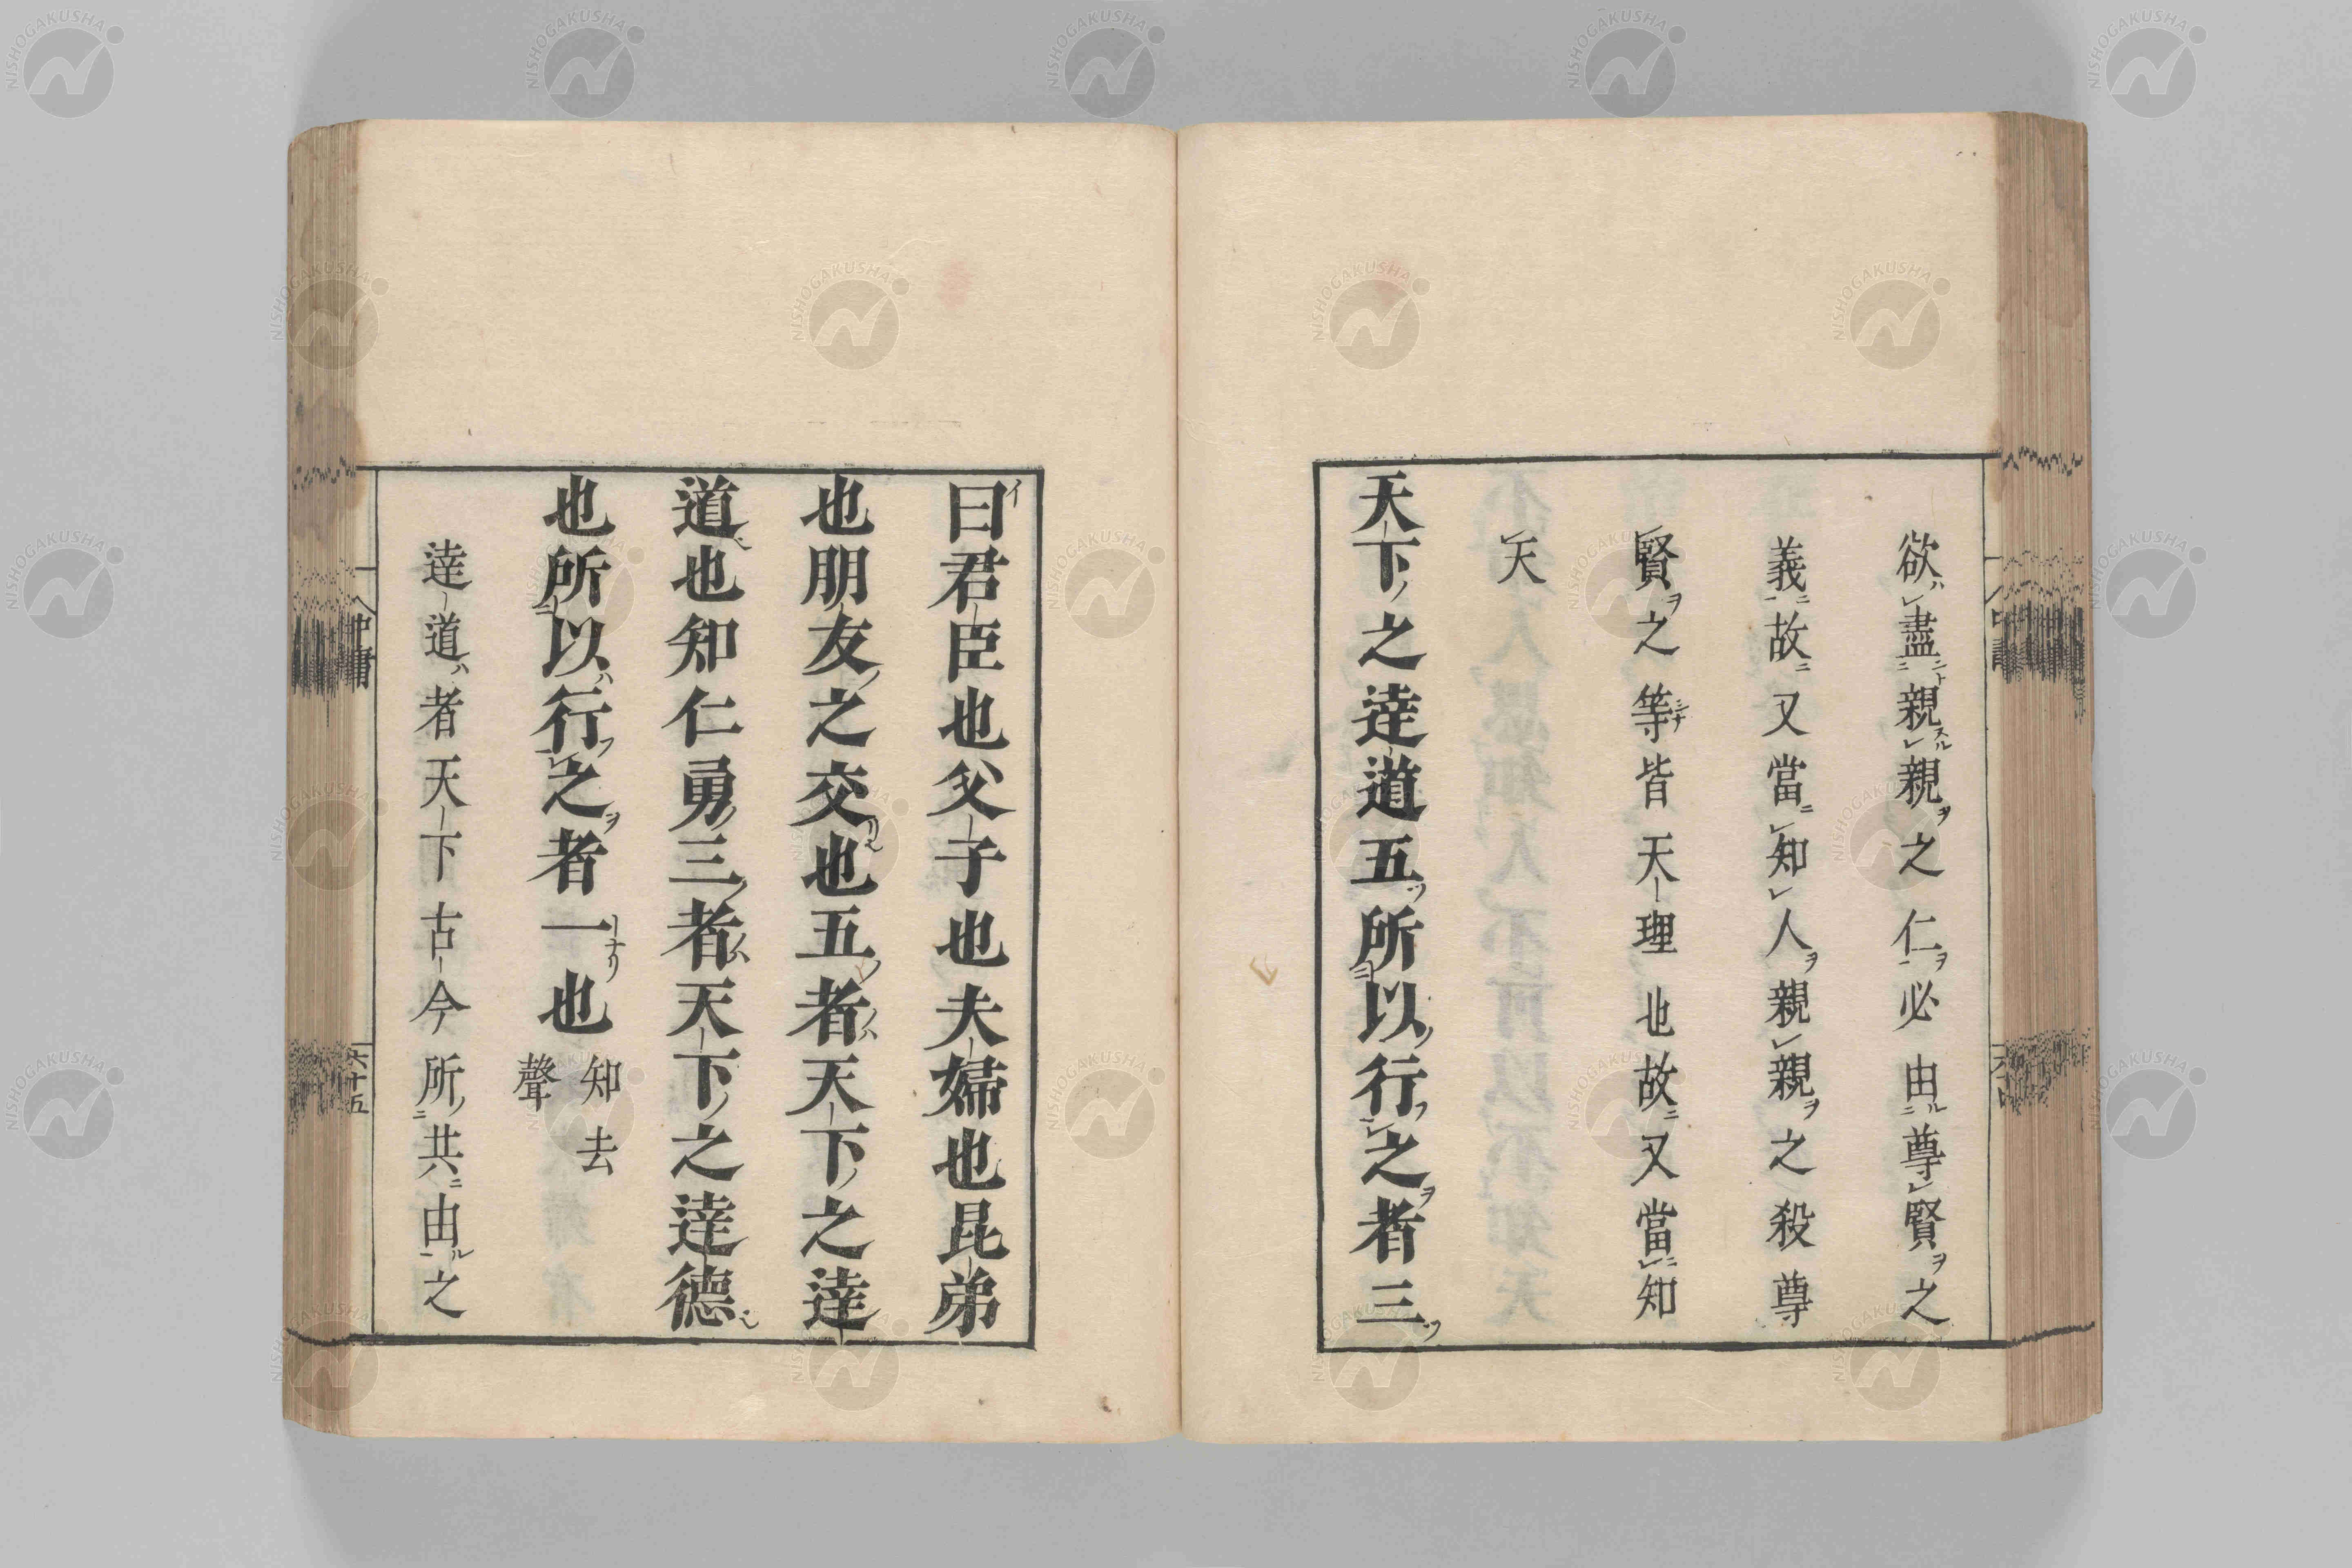 欲盡親親之仁必由尊賢之
義故又當知人親親之殺尊
賢之等皆天理也故又當知
天
天下之達道五所以行之者三
曰君臣也父子也夫婦也昆弟
也朋友之交也五者天下之達
道也知仁勇三者天下之達德
也所以行之者一也
知去
聲
達道者天下古今所共由之
中庸
六十五
NISHOGAKUSHA